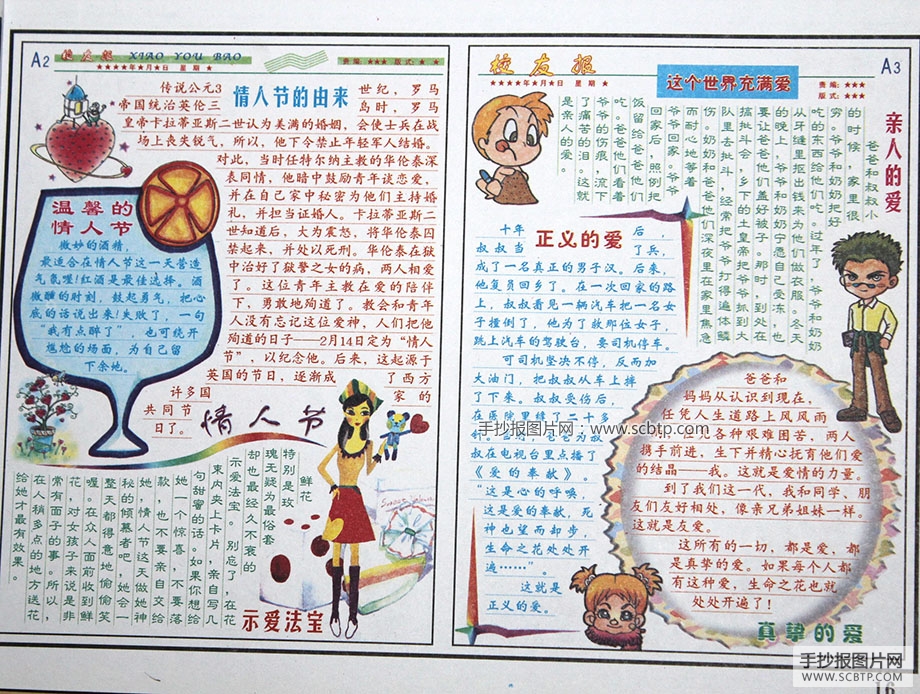 A2
校友报 XIAO YOU BAO
★★★★年★月★日 星期★
责编：★★★ 版式：★★
情人节的由来
传说公元3世纪，罗马
帝国统治英伦三岛时，罗马
皇帝卡拉蒂亚斯二世认为美满的婚姻，会使士兵在战
场上丧失锐气，所以，他下令禁止年轻军人结婚。
对此，当时任特尔纳主教的华伦泰深
表同情，他暗中鼓励青年谈恋爱，
并在自己家中秘密为他们主持婚
礼，并担当证婚人。卡拉蒂亚斯二
世知道后，大为震怒，将华伦泰囚
禁起来，并处以死刑。华伦泰在狱
中治好了狱警之女的病，两人相爱
了。这位青年主教在爱的陪伴
下，勇敢地殉道了。教会和青年
人没有忘记这位爱神，人们把他
殉道的日子——2月14日定为“情人
节”，以纪念他。后来，这起源于
英国的节日，逐渐成了西方
许多国家的
共同节
日了。
情人节
温馨的
情人节
微妙的酒精，
最适合在情人节这一天营造
气氛喔!红酒是最佳选择。酒
微醺的时刻，鼓起勇气，把心
底的话说出来!失败了，一句
“我有点醉了”，也可绕开
尴尬的场面，为自己留
下余地。
示爱法宝
鲜花
特别是玫
瑰无疑为最俗套
却也最经久不衰的
示爱法宝。别忘了，在花
束内夹上卡片，亲自写几
句甜蜜的话。如果你想给
她一个惊喜，不要落
款，也不要亲自交给
她，情人节这天做她神
秘的倾慕者吧，她会一
整天都得意地偷偷笑
喔。在众人面前收到鲜
花，对女孩子来说是非
常有面子的事。所以，
在人稍多点的地方送花
给她才最有效果。
校友报
★★★★年★月★日 星期★
这个世界充满爱
责编：★★★
版式：★★★
A3
亲人的爱
爸爸和叔叔小
的时候，家里很
穷。爷爷和奶奶把好
吃的东西给他们吃。过年了，爷爷和奶奶
从牙缝里抠出钱来为他们做衣服。冬天
的晚上，爷爷和奶奶宁愿自己受冻，也
要让爸爸他们盖好被子。那时，到处在
搞批斗会，乡下的土皇帝把爷爷抓到大
队里去批斗，经常把爷爷打得遍体鳞
伤。奶奶和爸爸他们深夜里在家里焦急
而耐心地等着
爷爷回家。爷爷
回家后，照例把
饭留给爸爸他们
吃。爸爸他们看着
爷爷的伤痕，流下
了痛苦的泪。这就
是亲人的爱。
正义的爱
十年后，
叔叔当了兵，
成了一名真正的男子汉。后来，
他复员回乡了。在一次回家的路
上，叔叔看见一辆汽车把一名女
子撞倒了，他为了救那位女子，
跳上汽车的驾驶台，要司机停车。
可司机坚决不停，反而加
大油门，把叔叔从车上摔
了下来。叔叔受伤后，
在医院里缝了二十多
叔在电视台里点播了
《爱的奉献》。
“这是心的呼唤，
这是爱的奉献，死
神也望而却步，
生命之花处处开
遍……”。
这就是
正义的爱。
爸爸和
妈妈从认识到现在，
任凭人生道路上风风雨
任凭各种艰难困苦，两人
携手前进，生下并精心抚育他们爱
的结晶——我。这就是爱情的力量。
到了我们这一代，我和同学、朋
友们友好相处，像亲兄弟姐妹一样。
这就是友爱。
这所有的一切，都是爱，都
是真挚的爱。如果每个人都
有这种爱，生命之花也就
处处开遍了！
真挚的爱
手抄报图片网：www.scbtp.com
手抄报图片网
WWW.SCBTP.COM
16